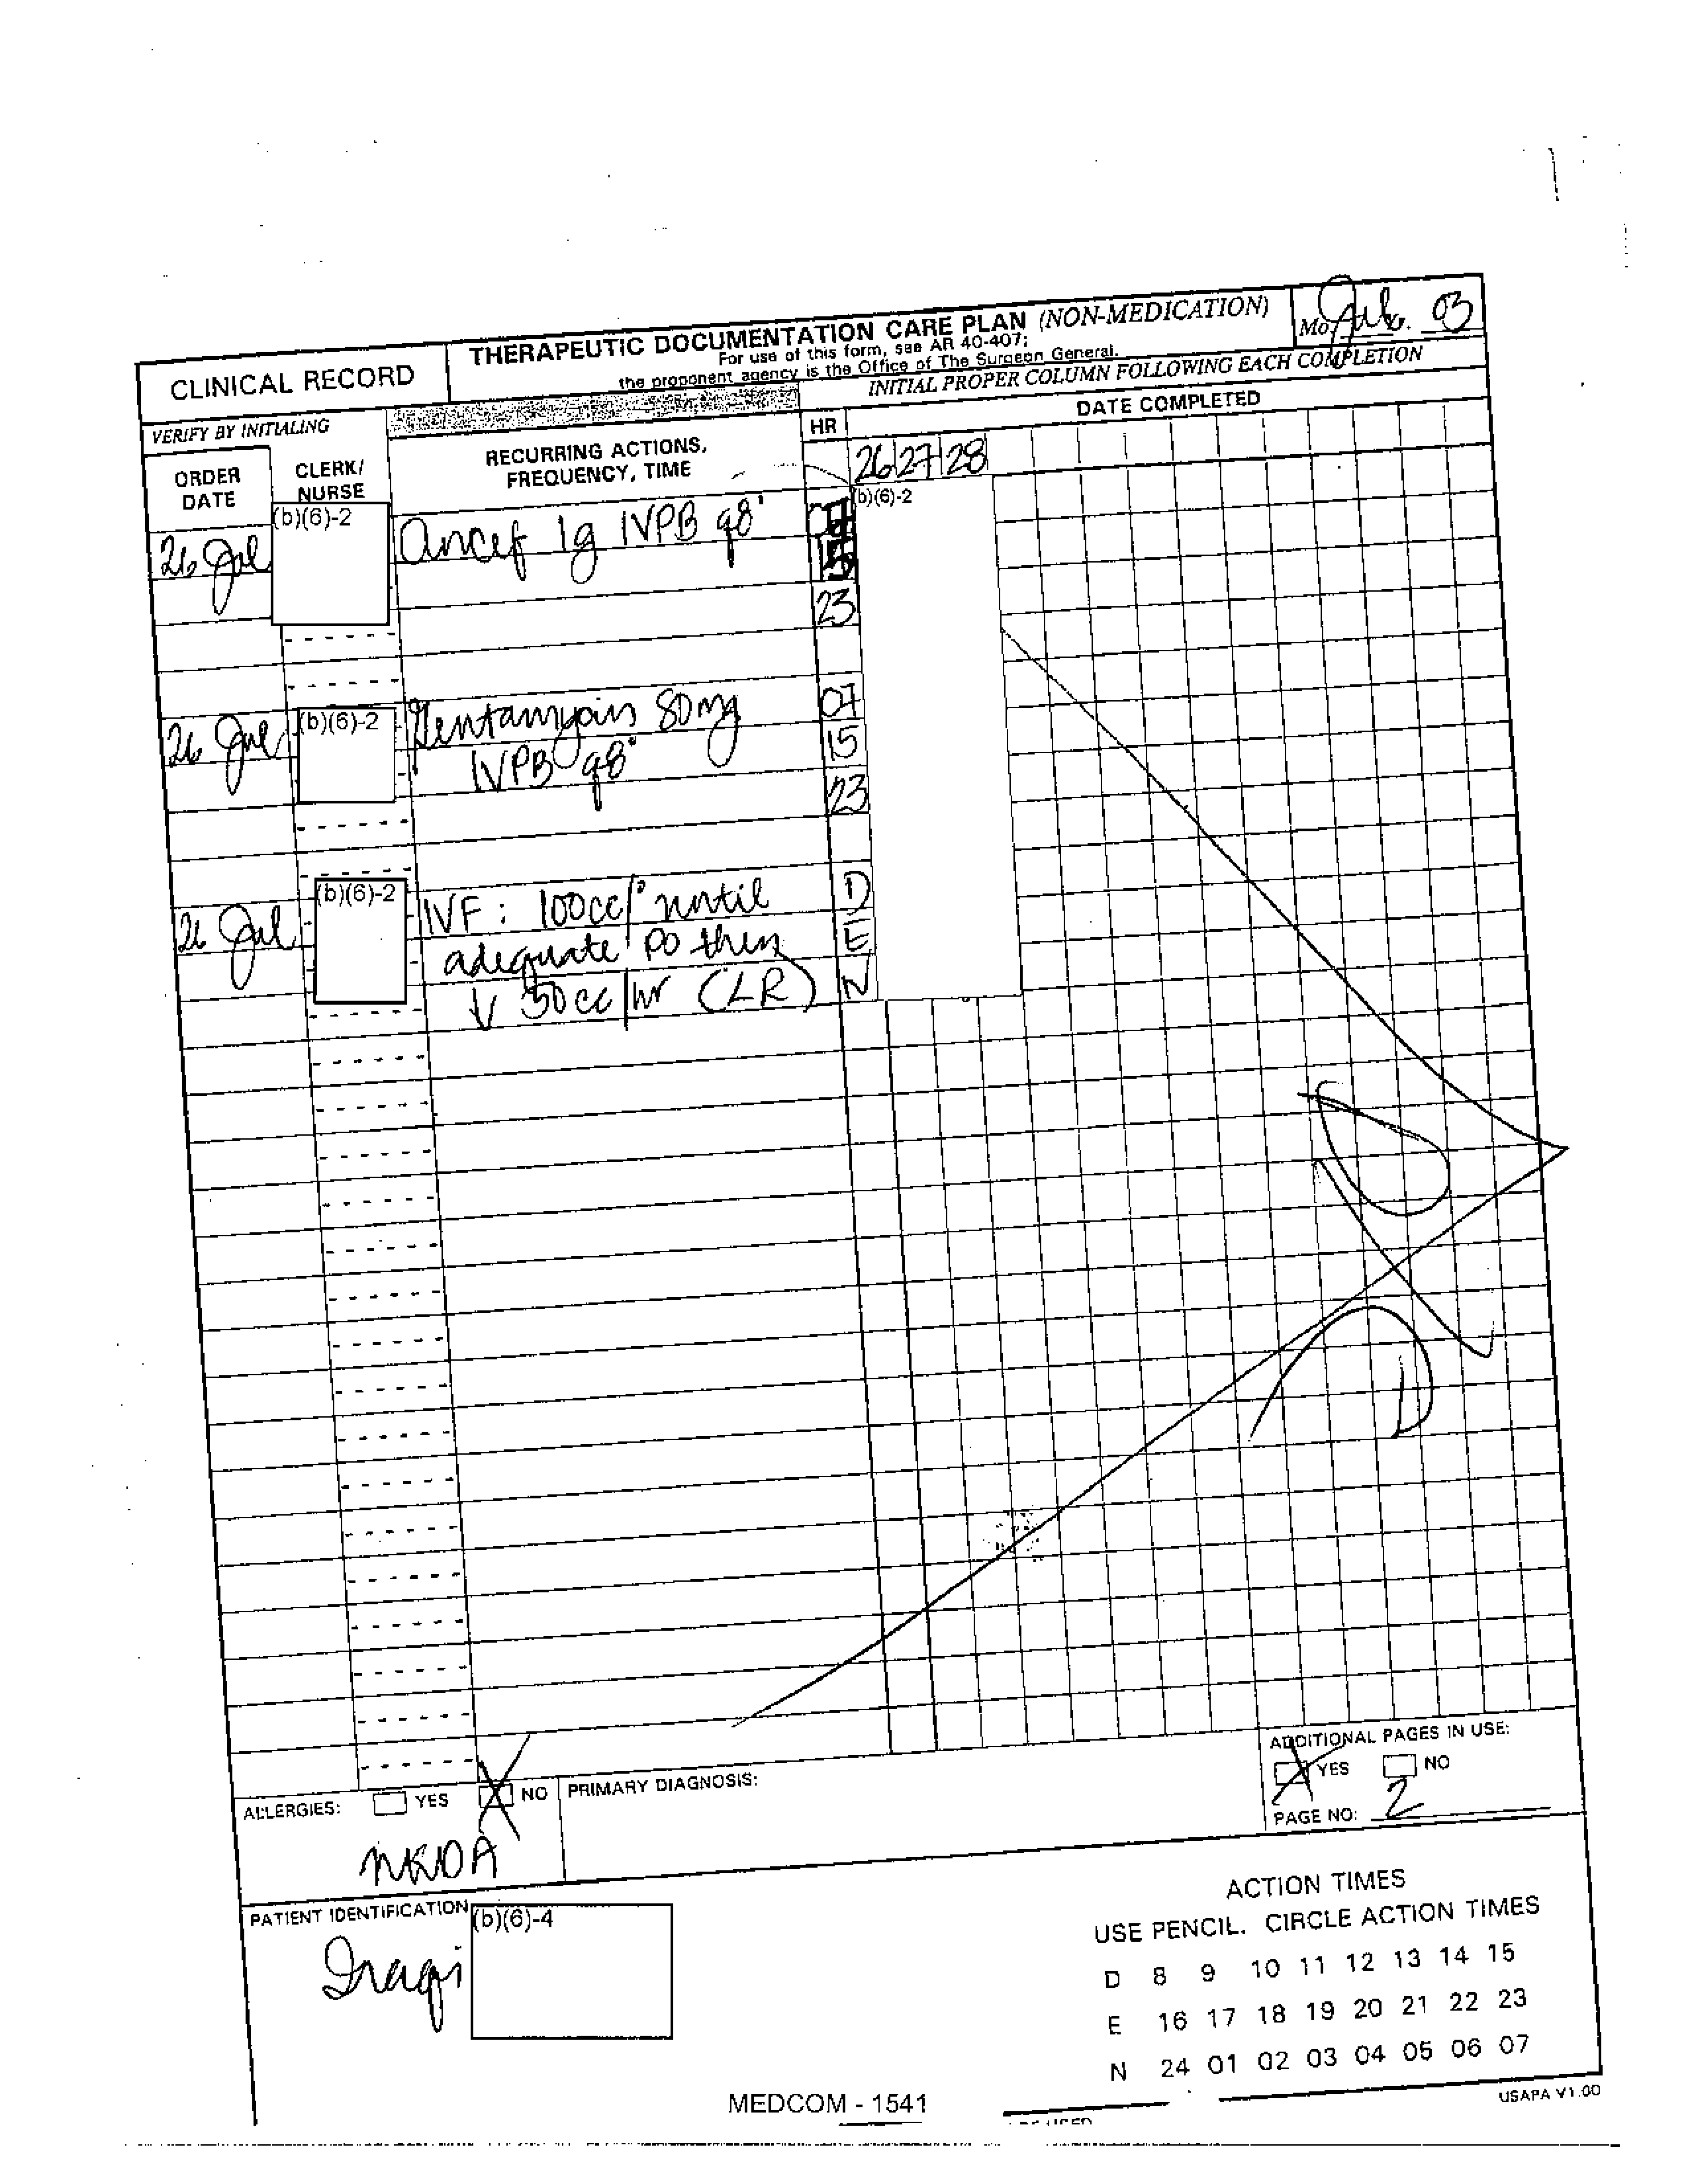 CLINICAL RECORD
THERAPEUTIC DOCUMENTATION CARE PLAN (NON-MEDICATION)
For use of this form, see AR 40-407;
the proponent agency is the Office of The Surgeon General.
Mo. Yr. 03
VERIFY BY INITIALING
INITIAL PROPER COLUMN FOLLOWING EACH COMPLETION
ORDER DATE
CLERK/ NURSE
RECURRING ACTIONS, FREQUENCY, TIME
HR
DATE COMPLETED
26 27 28
26 Jul (b)(6)-2 Ancef 1g IVPB q8° (b)(6)-2
15
23
26 Jul (b)(6)-2 Gentamycin 80mg 07
IVPB q8° 15
23
26 Jul (b)(6)-2 IVF: 100cc/° until D
adequate PO then E
↓ 50cc/hr (LR) N
ALLERGIES: YES X NO
NKDA
PRIMARY DIAGNOSIS:
ADDITIONAL PAGES IN USE:
X YES NO
PAGE NO: 2
PATIENT IDENTIFICATION
(b)(6)-4
Iraqi
ACTION TIMES
USE PENCIL. CIRCLE ACTION TIMES
D 8 9 10 11 12 13 14 15
E 16 17 18 19 20 21 22 23
N 24 01 02 03 04 05 06 07
MEDCOM - 1541
USAPA V1.00